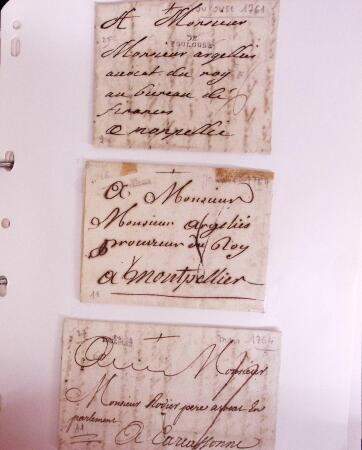 Toulouse 1761
A Monsieur
DE TOULOUSE
Monsieur argellies
avocat du roy
au bureau de
finances
a monpellie
A Monsieur
Monsieur argeliés
procureur du Roy
a Montpellier
11
mars 1764
A Monsieur
Monsieur Rodier pere avocat En
parlement
A Carcassonne